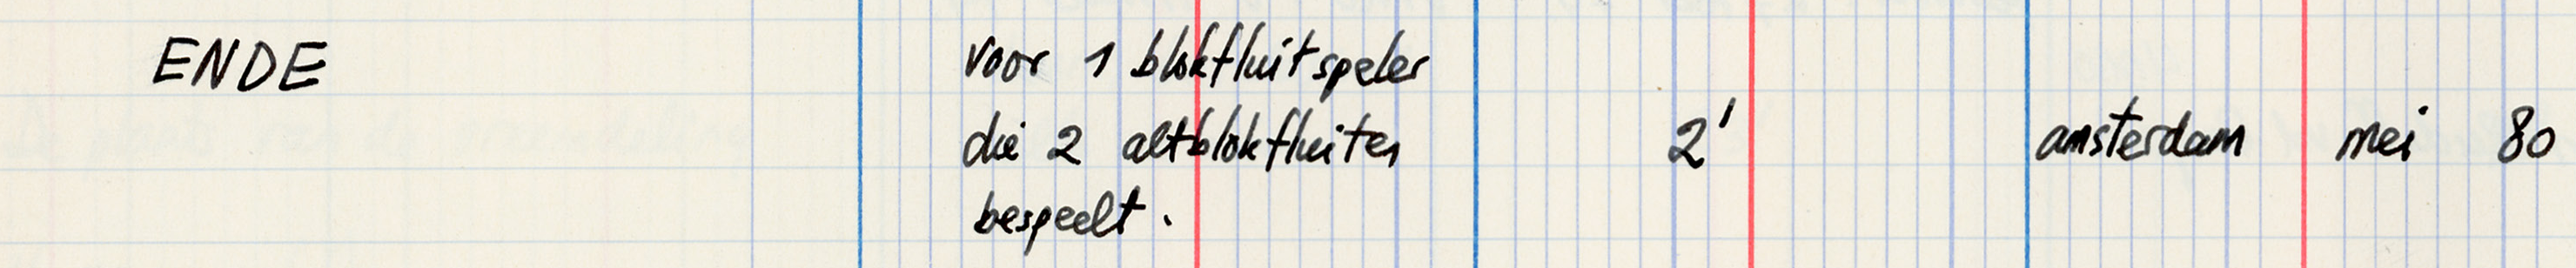 ENDE
voor 1 blokfluitspeler
die 2 altblokfluiten 2' amsterdam mei 80
bespeelt.